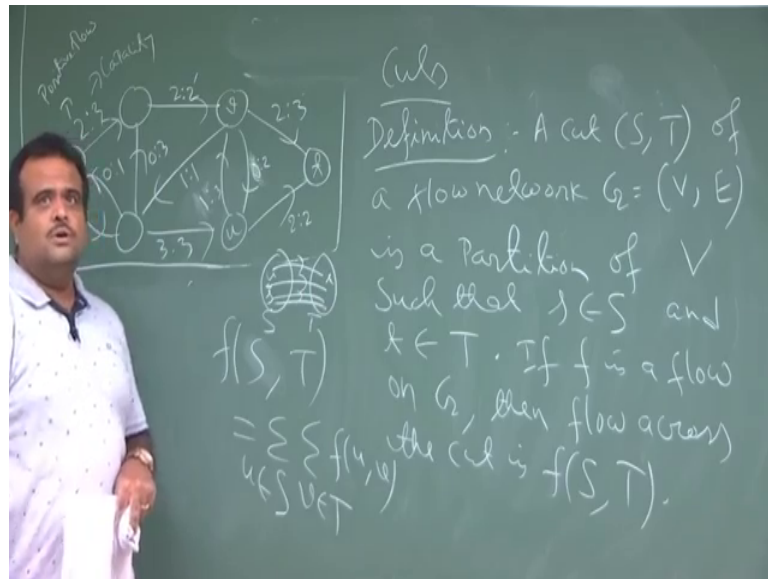 Positive flow
Capacity
2:2
2:2
2:3
0:1
0:3
1:1
1:3
2:2
3:3
u
S T
f(S, T)
= Σ Σ f(u, v)
u∈S v∈T
Cuts
Definition :- A cut (S, T) of
a flow network G = (V, E)
is a Partition of V
Such that s ∈ S and
t ∈ T. If f is a flow
on G, then flow across
the cut is f(S, T).